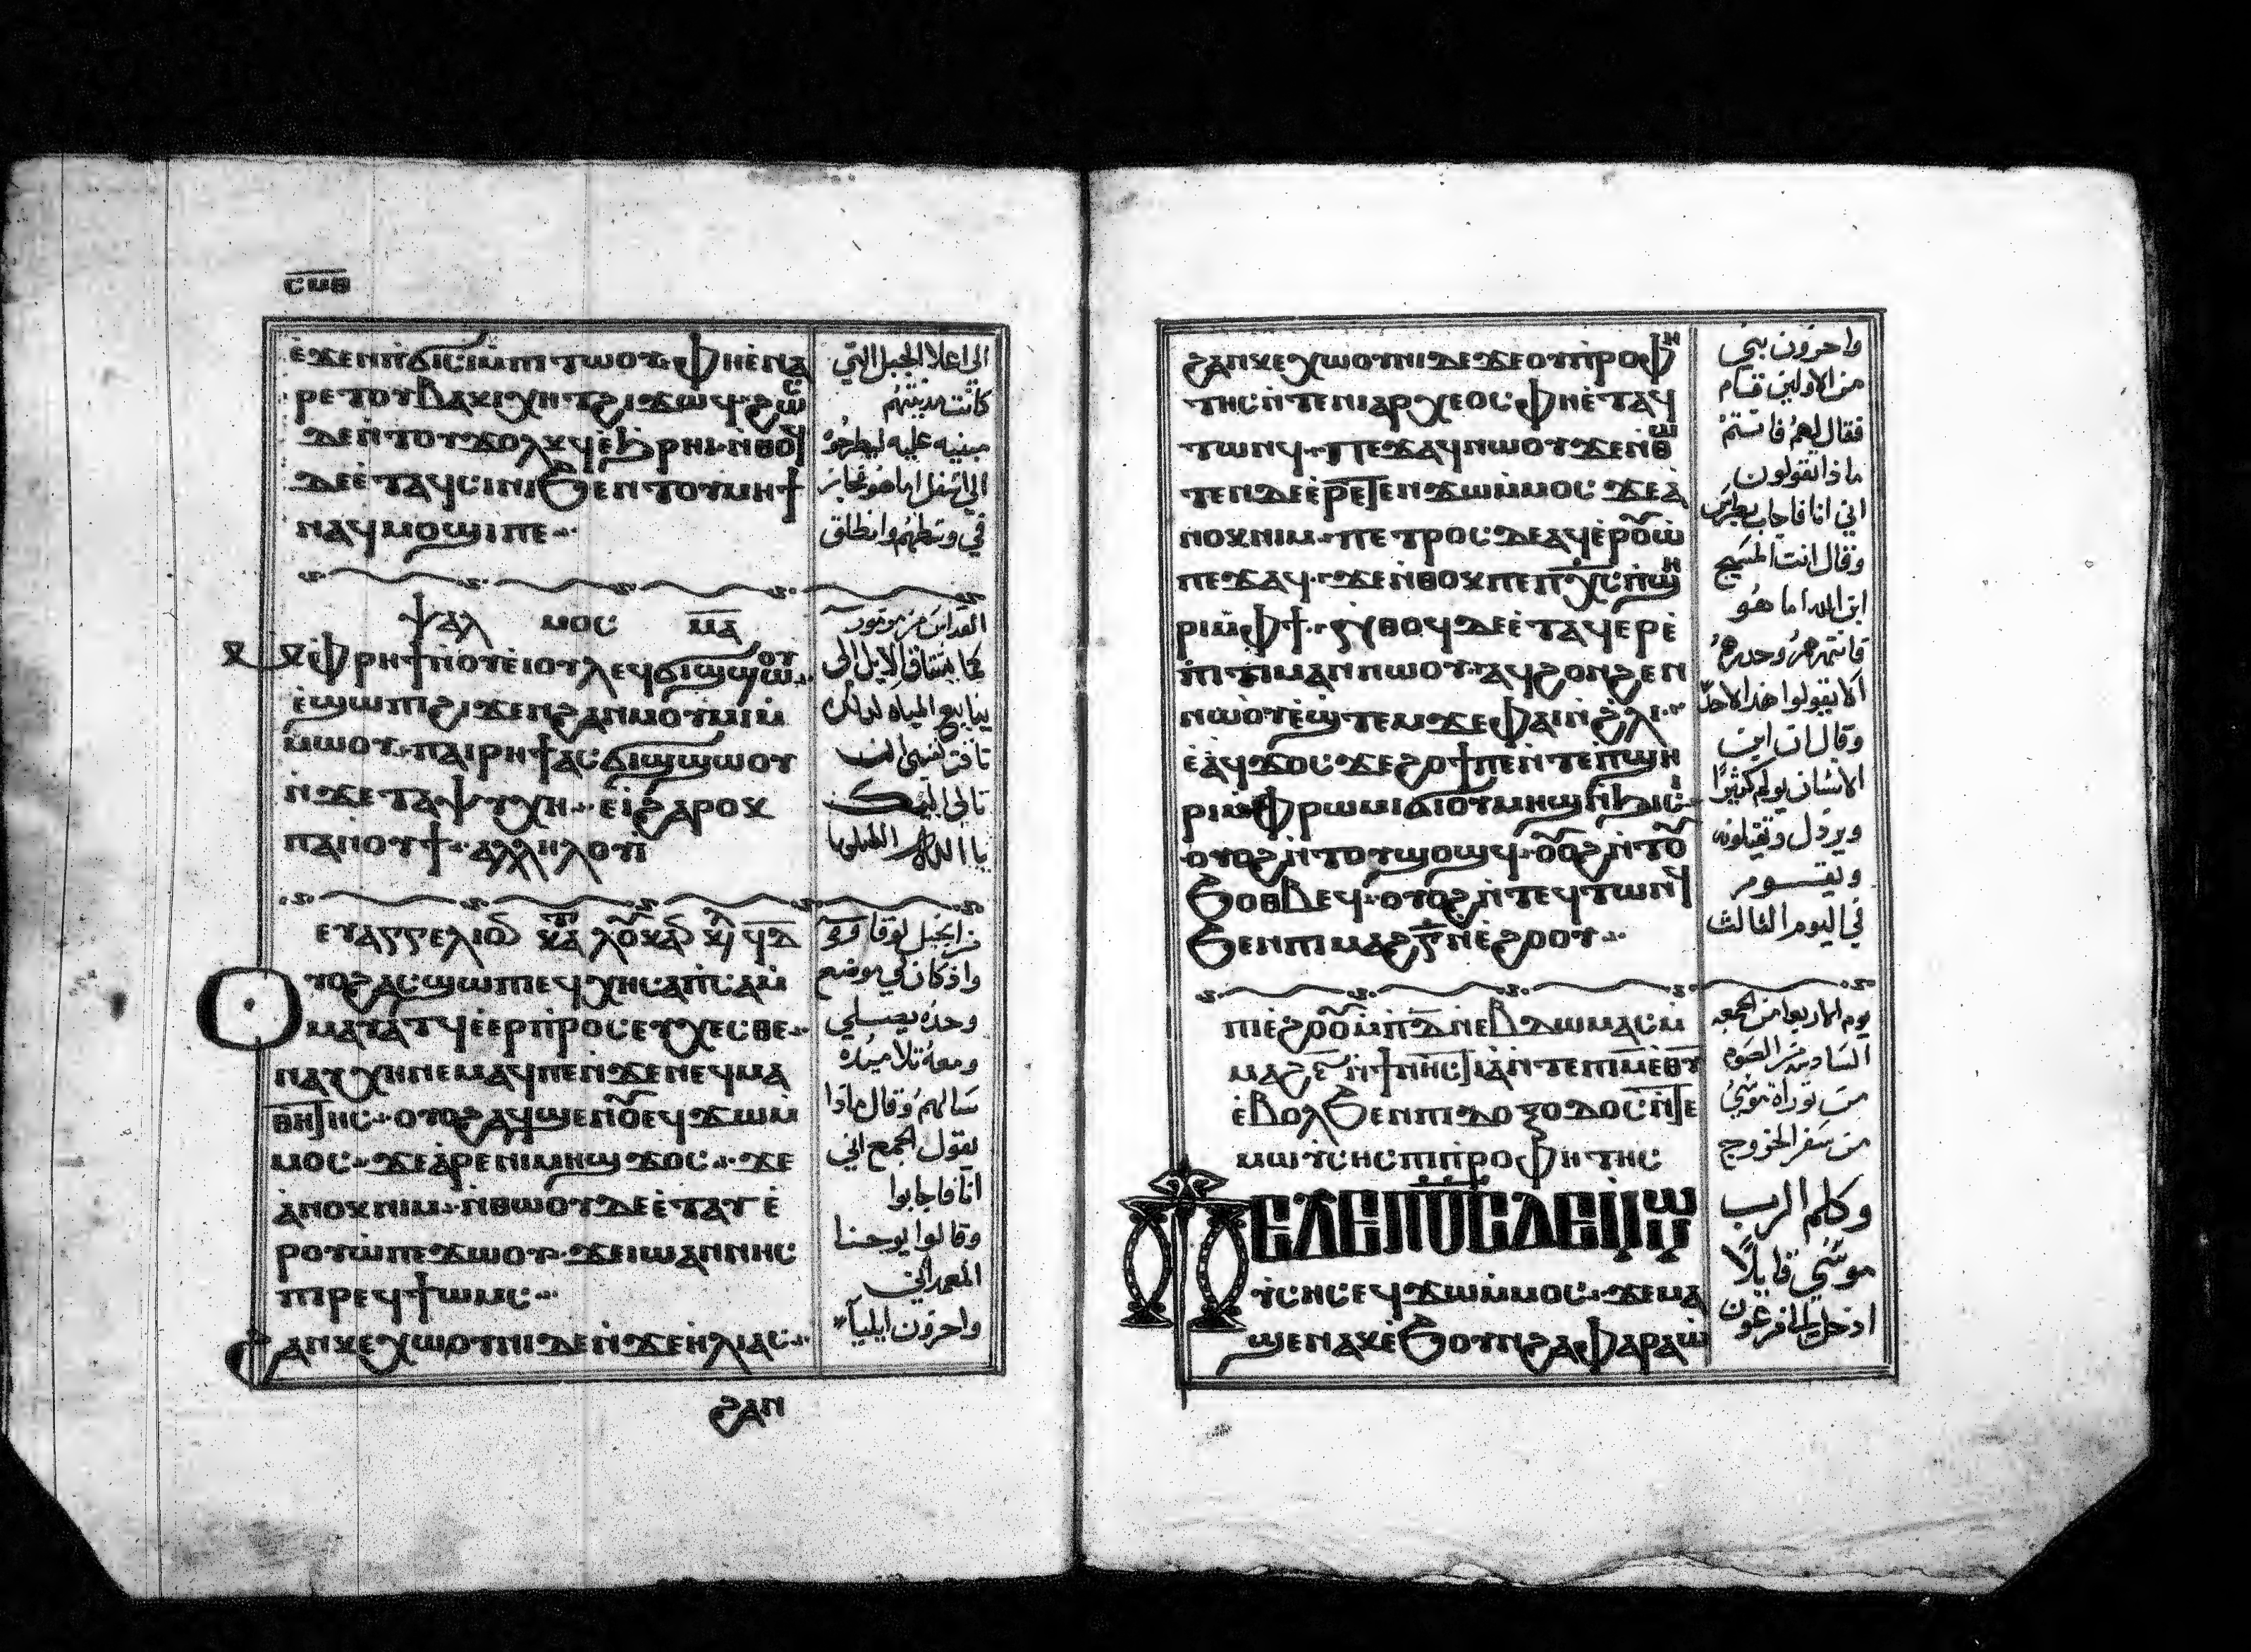 ⲥⲙⲑ
ⲉ̀ϫⲉⲛⲡ̀ϭⲓⲥⲓⲙ̀ⲡⲓⲧⲱⲟⲩ· ⲫⲏⲉ̀ⲛⲁ
ⲣⲉⲧⲟⲩⲃⲁⲕⲓⲭⲏⲧϩⲓϫⲱϥ· ϩⲱⲥ
ⲇⲉⲛ̀ⲧⲟⲩϫⲟⲗⲕϥⲉ̀ϧⲣⲏⲓ· ⲛ̀ⲑⲟϥ
ⲇⲉⲉ̀ⲧⲁϥⲥⲓⲛⲓϧⲉⲛⲧⲟⲩⲙⲏϯ
ⲛⲁϥⲙⲟϣⲓⲡⲉ
الى اعلا الجبل التي
كانت مدينتهم
مبنيه عليه ليطرحوه
الى اسفل اما هو فجاز
في وسطهم وانطلق
ⲯⲁⲗ ⲙⲟⲥ ⲙ̅ⲁ̅
ⲙ̀ⲫⲣⲏϯⲛ̀ⲟⲩⲉⲓⲟⲩⲗⲉϥϭⲓϣϣⲱⲟⲩ
ⲉ̀ϣⲱⲡⲓϩⲓϫⲉⲛϩⲁⲛⲙⲟⲩⲙⲓⲙ̀
ⲙⲱⲟⲩ· ⲡⲁⲓⲣⲏϯⲁⲥϭⲓϣϣⲱⲟⲩ
ⲛ̀ϫⲉⲧⲁⲯⲩⲭⲏ· ⲉⲓ̀ϩⲁⲣⲟⲕ
ⲡⲁⲛⲟⲩϯ· ⲁⲗⲗⲏⲗⲟⲩⲓ̀
كما يشتاق الايل الى
ينابيع المياه كذلك
تاقت نفسي ان
تاتي اليك
يا الله الليلويا
ⲉⲩⲁⲅⲅⲉⲗⲓⲟⲛ ⲕⲁⲧⲁ ⲗⲟⲩⲕⲁⲛ ⲕⲉ ϥ̅ⲇ̅
ⲟⲩⲟϩⲁⲥϣⲱⲡⲓⲉϥⲭⲏⲥⲁⲡ̀ⲥⲁⲙ̀
ⲙⲁⲩⲁⲧϥⲉ̀ⲉⲣⲡ̀ⲣⲟⲥⲉⲩⲭⲉⲥⲑⲉ
ⲛⲁⲩⲭⲏⲛⲉⲙⲁϥⲡⲉⲛ̀ϫⲉⲛⲉϥⲙⲁ
ⲑⲏⲧⲏⲥ· ⲟⲩⲟϩⲁϥϣⲉⲛⲟⲩⲉϥϫⲱⲙ̀
ⲙⲟⲥ· ϫⲉⲁ̀ⲣⲉⲛⲓⲙⲏϣϫⲟⲥ· ϫⲉ
ⲁ̀ⲛⲟⲕⲛⲓⲙ· ⲛ̀ⲑⲱⲟⲩⲇⲉⲉ̀ⲧⲁⲩⲉ̀
ⲣⲟⲩⲱ̀ⲡⲉϫⲱⲟⲩ· ϫⲉⲓⲱⲁⲛⲛⲏⲥ
ⲡⲓⲣⲉϥϯⲱⲙⲥ
ϩⲁⲛⲕⲉⲭⲱⲟⲩⲛⲓⲇⲉⲛ̀ϫⲉⲏ̀ⲗⲓⲁⲥ
من انجيل لوقا
واذ كان في موضع
وحده يصلي
ومعه تلاميذه
سالهم وقال ماذا
يقول الجمع اني
انا فاجابوا
وقالوا يوحنا
المعمداني
واخرون ايلياء
ϩⲁⲛ
ϩⲁⲛⲕⲉⲭⲱⲟⲩⲛⲓⲇⲉϫⲉⲟⲩⲡ̀ⲣⲟⲫⲏ
ⲧⲏⲥⲛ̀ⲧⲉⲛⲓⲁⲣⲭⲉⲟⲥⲫⲏⲉ̀ⲧⲁϥ
ⲧⲱⲛϥ· ⲡⲉϫⲁϥⲛⲱⲟⲩϫⲉⲛ̀ⲑⲱ
ⲧⲉⲛⲇⲉⲉ̀ⲣⲉⲧⲉⲛϫⲱⲙ̀ⲙⲟⲥ ϫⲉⲁ̀
ⲛⲟⲕⲛⲓⲙ· ⲡⲉⲧⲣⲟⲥⲇⲉⲁϥⲉ̀ⲣⲟⲩⲱ̀
ⲡⲉϫⲁϥ· ϫⲉⲛ̀ⲑⲟⲕⲡⲉⲡⲭ̅ⲥ̅ⲡ̀ϣⲏ
ⲣⲓⲙ̀ⲫϯ· ⲛ̀ⲑⲟϥⲇⲉⲉ̀ⲧⲁϥⲉⲣⲉ̀
ⲡⲓⲧⲓⲙⲁⲛⲛⲱⲟⲩ· ⲁϥϩⲟⲛϩⲉⲛ
ⲛⲱⲟⲩⲉ̀ϣⲧⲉⲙϫⲉⲫⲁⲓⲛ̀ϩⲗⲓ
ⲉ̀ⲁϥϫⲟⲥϫⲉϩⲟϯⲡⲉⲛ̀ⲧⲉⲡ̀ϣⲏ
ⲣⲓⲙ̀ⲫⲣⲱⲙⲓϭⲓⲟⲩⲙⲏϣⲛ̀ϧⲓⲥⲓ
ⲟⲩⲟϩⲛ̀ⲧⲟⲩϣⲟϣϥ· ⲟⲩⲟϩⲛ̀ⲧⲟⲩ
ϧⲟⲑⲃⲉϥ· ⲟⲩⲟϩⲛ̀ⲧⲉϥⲧⲱⲛϥ
ϧⲉⲛⲡⲓⲙⲁϩⲅ̅ⲛ̀ⲉϩⲟⲟⲩ
واخرون نبي
من الاولين قام
فقال لهم فانتم
ماذا تقولون
اني انا فاجاب بطرس
وقال انت المسيح
ابن الله اما هو
فانتهرهم وحذرهم
الا يقولوا هذا لاحد
وقال ان ابن
الانسان يولم كثيرًا
ويرذل ويقتلونه
ويقوم
في اليوم الثالث
ⲡⲓⲉ̀ϩⲟⲟⲩⲙ̀ⲡ̅ⲇ̅ⲛⲉⲃⲇⲱⲙⲁⲥⲙ̀
ⲙⲁϩⲋ̅ⲛ̀ϯⲛⲏⲥⲧⲓⲁ̀ⲛ̀ⲧⲉⲡⲓⲙⲉⲑⲩ
ⲉ̀ⲃⲟⲗϧⲉⲛⲡⲓⲇⲟⲝⲟⲇⲟⲥⲛ̀ⲧⲉ
ⲙⲱⲩⲥⲏⲥⲡⲓⲡ̀ⲣⲟⲫⲏⲧⲏⲥ
ⲡⲉϫⲉⲡⲟ̅ⲥ̅ⲇⲉⲙ̀ⲙⲱ
ⲩⲥⲏⲥⲉϥϫⲱⲙ̀ⲙⲟⲥ· ϫⲉⲙⲁ
ϣⲉⲛⲁⲕⲉ̀ϧⲟⲩⲛϩⲁⲫⲁⲣⲁⲱ̀
يوم الاربعا من الجمعه
السادسه من الصوم
من توراة موسى
من سفر الخروج
وكلم الرب
موسى قايلًا
ادخل الى فرعون